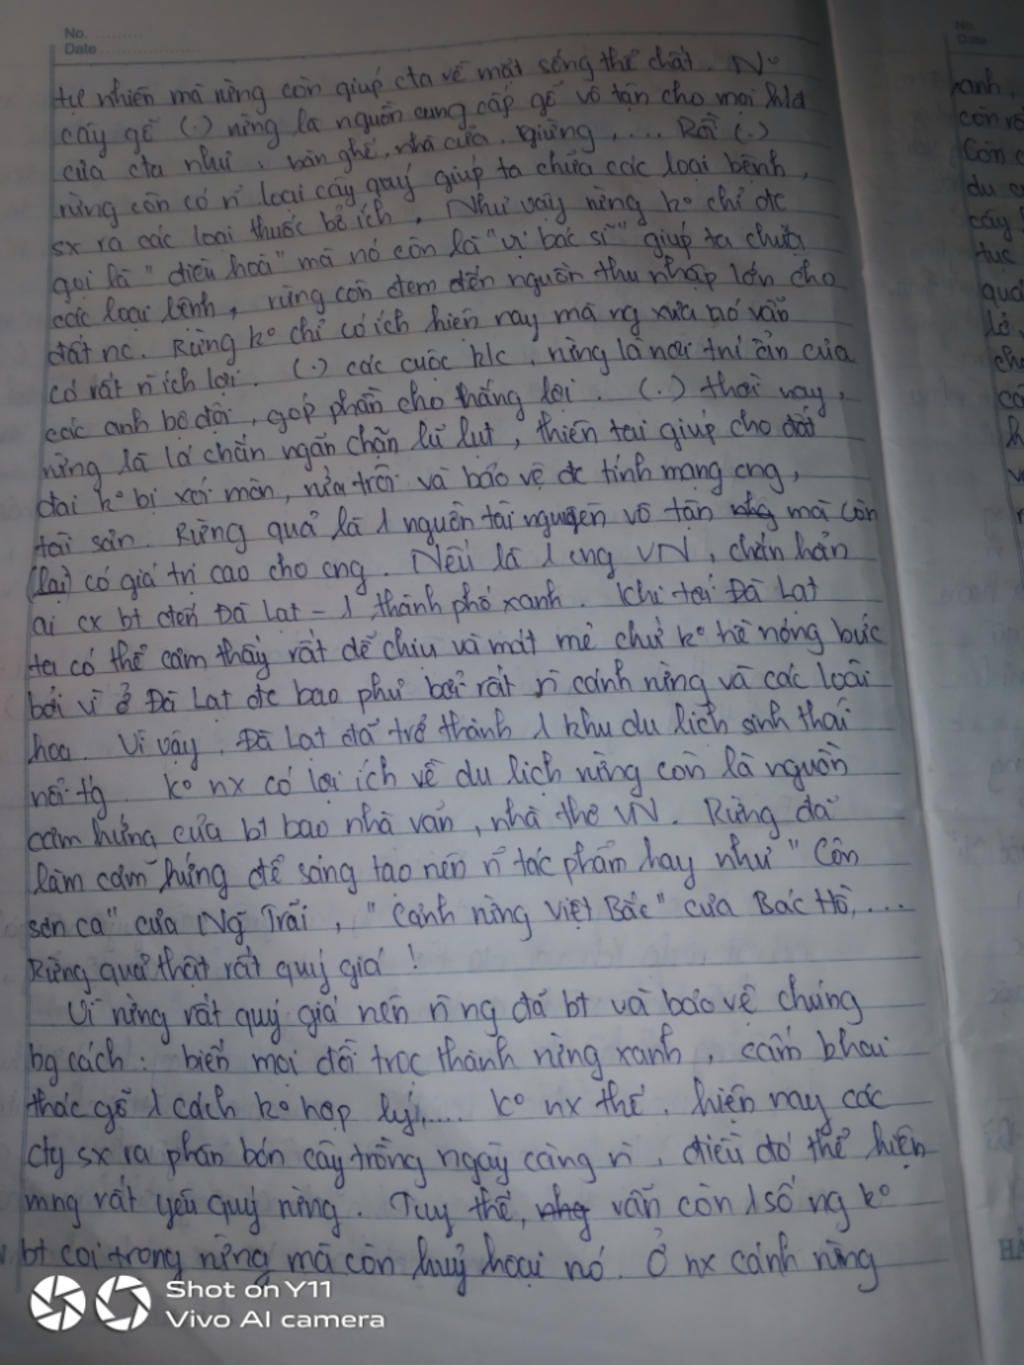 No.
Date
tự nhiên mà rừng còn giúp cta về mặt sống thể chất. N°
cây gỗ (.) rừng là nguồn cung cấp gỗ vô tận cho mọi
của cta như: bàn ghế, nhà cửa, giường, .... Rồi (.)
rừng còn có n̄ loại cây quý giúp ta chữa các loại bệnh,
sx ra các loại thuốc bổ ích. Như vậy rừng k° chỉ đc
gọi là "điều hoà" mà nó còn là "vị bác sĩ" giúp ta chữa
các loại bệnh, rừng còn đem đến nguồn thu nhập lớn cho
đất nc. Rừng k° chỉ có ích hiện nay mà ng xưa nó vẫn
có rất n̄ ích lợi. (.) các cuộc k/c, rừng là nơi trú ẩn của
các anh bộ đội, góp phần cho thắng lợi. (.) thời nay,
rừng là lá chắn ngăn chặn lũ lụt, thiên tai giúp cho đất
đai k° bị xói mòn, rửa trôi và bảo vệ đc tính mạng cng,
tài sản. Rừng quả là 1 nguồn tài nguyên vô tận nhg mà còn
(lại) có giá trị cao cho cng. Nếu là 1 cng VN, chắn hẳn
ai cx bt đến Đà Lạt - 1 thành phố xanh. Khi tới Đà Lạt
ta có thể cảm thấy rất dễ chịu và mát mẻ chứ k° hề nóng bức
bởi vì ở Đà Lạt đc bao phủ bởi rất n̄ cánh rừng và các loài
hoa. Vì vậy, Đà Lạt đã trở thành 1 khu du lịch sinh thái
nổi tg. k° nx có lợi ích về du lịch rừng còn là nguồn
cảm hứng của bt bao nhà văn, nhà thơ VN. Rừng đã
làm cảm hứng để sáng tạo nên n̄ tác phẩm hay như "Côn
sơn ca" của Ng Trãi, "Cảnh rừng Việt Bắc" của Bác Hồ,...
Rừng quả thật rất quý giá!
Vì rừng rất quý giá nên n̄ ng đã bt và bảo vệ chúng
bg cách: biến mọi đồi trọc thành rừng xanh, cấm khai
thác gỗ 1 cách k° hợp lý,.... k° nx thế, hiện nay các
cty sx ra phân bón cây trồng ngày càng n̄, điều đó thể hiện
mng rất yêu quý rừng. Tuy thế, nhg vẫn còn 1 số ng k°
bt coi trọng rừng mà còn huỷ hoại nó. Ở nx cánh rừng
Shot on Y11
Vivo AI camera